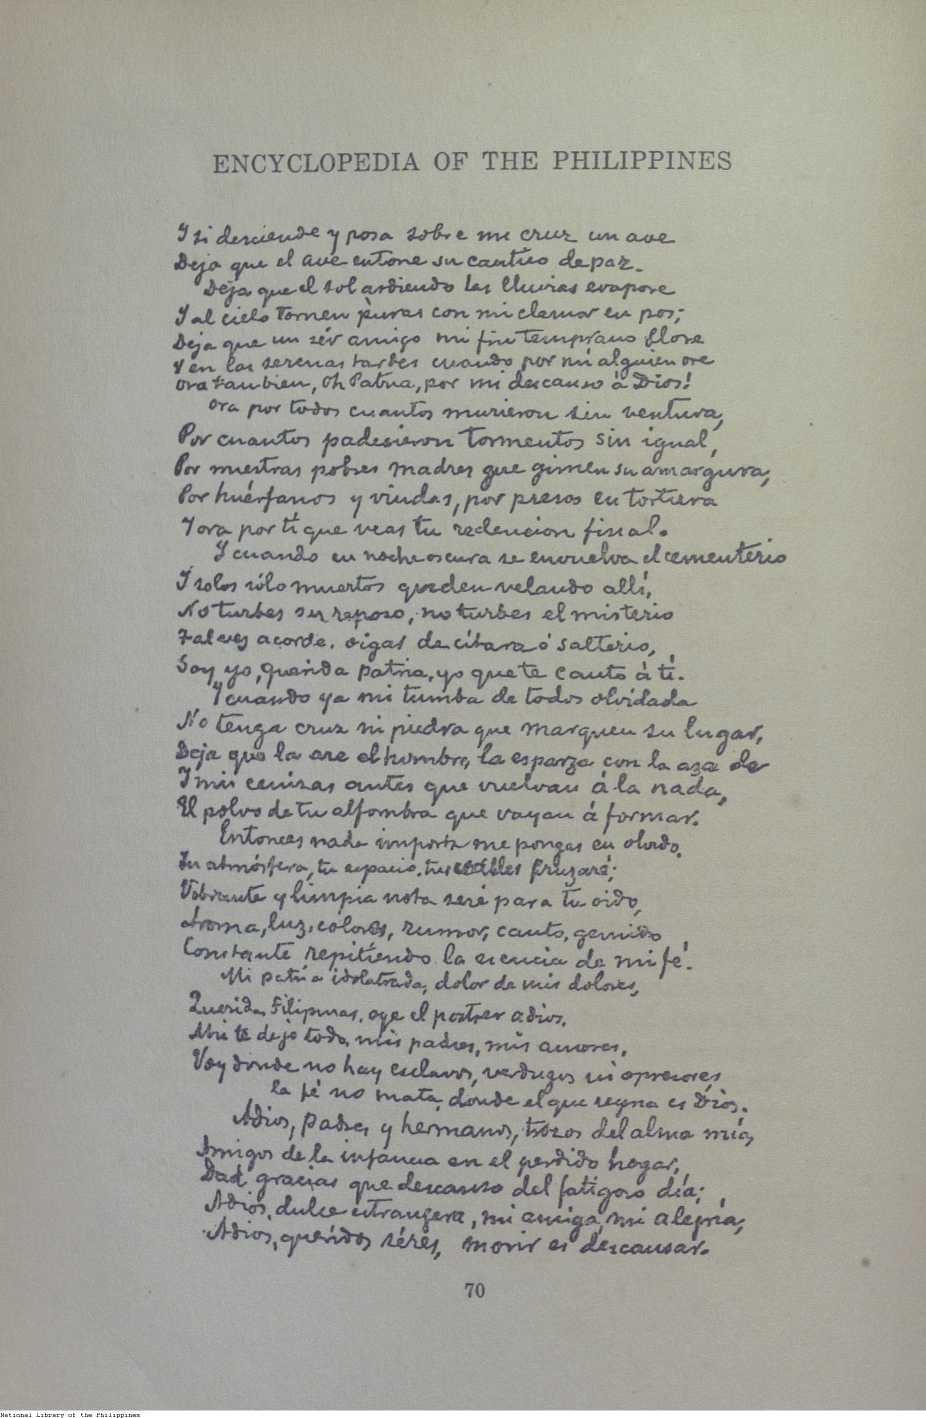 ENCYCLOPEDIA OF THE PHILIPPINES
Y si desciende y posa sobre mi cruz un ave
Deja que el ave entone su cantico de paz.
Deja que el sol ardiendo las lluvias evapore
Y al cielo tornen puras con mi clamor en pos;
Deja que un sér amigo mi fin temprano llore
Y en las serenas tardes cuando por mi alguien ore
Ora tambien, Oh Patria, por mi descanso á Dios!
Ora por todos cuantos murieron sin ventura,
Por cuantos padecieron tormentos sin igual,
Por nuestras pobres madres que gimen su amargura;
Por huérfanos y viudas, por presos en tortura
Y ora por tí que veas tu redencion final.
Y cuando en noche oscura se envuelva el cementerio
Y solos sólo muertos queden velando allí,
No turbes su reposo, no turbes el misterio
Tal vez acorde oigas de citara ó salterio,
Soy yo, querida patria, yo que te canto á ti.
Y cuando ya mi tumba de todos olvidada
No tenga cruz ni piedra que marquen su lugar,
Deja que la are el hombre, la esparza con la aza de
Y mis cenizas antes que vuelvan á la nada,
El polvo de tu alfombra que vayan á formar.
Entonces nada importa me pongas en olvido,
Tu atmósfera, tu espacio, tus cruzaré;
Vibrante y limpia nota seré para tu oido,
Aroma, luz, colores, rumor, canto, gemido
Constante repitiendo la esencia de mi fé.
Mi patria idolatrada, dolor de mis dolores,
Querida Filipinas, oye el postrer adios.
Ahi te dejo todo, mis padres, mis amores.
Voy donde no hay esclavos, verdugos ni opresores
la fé no mata, donde el que reyna es Dios.
Adios, padres y hermanos, trozos del alma mia,
Amigos de la infancia en el perdido hogar,
Dad gracias que descanso del fatigoso día;
Adios, dulce estrangera, mi amiga, mi alegria,
Adios, queridos séres, morir es descansar.
70
National Library of the Philippines